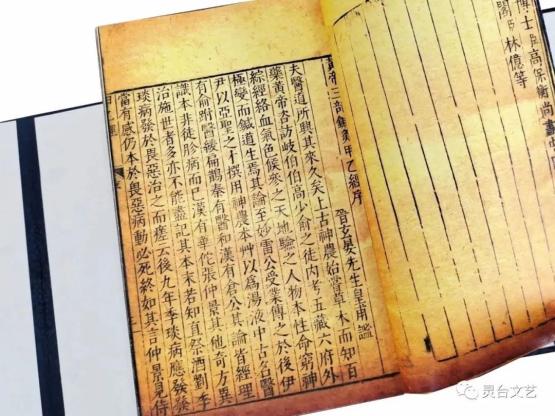 博士臣高保衡尚書屯
閣臣林億等
黃帝三部鍼灸甲乙經序
晉玄晏先生皇甫謐
夫醫道所興其來久矣上古神農始嘗草木而知百
藥黃帝咨訪岐伯伯高少俞之徒內考五藏六府外
綜經絡血氣色候參之天地驗之人物本性命窮神
極變而鍼道生焉其論至妙雷公受業傳之於後伊
尹以亞聖之才撰用神農本艸以為湯液中古名醫
有俞附醫緩扁鵲秦有醫和漢有倉公其論皆經理
識本非徒診病而已漢有華佗張仲景其他奇方異
治施世者多亦不能盡記其本末若知直祭酒劉季
琰病發於畏惡治之而瘥云後九年季琰病應發發
當有感仍本於畏惡病動必死終如其言仲景見侍
序
灵台文艺